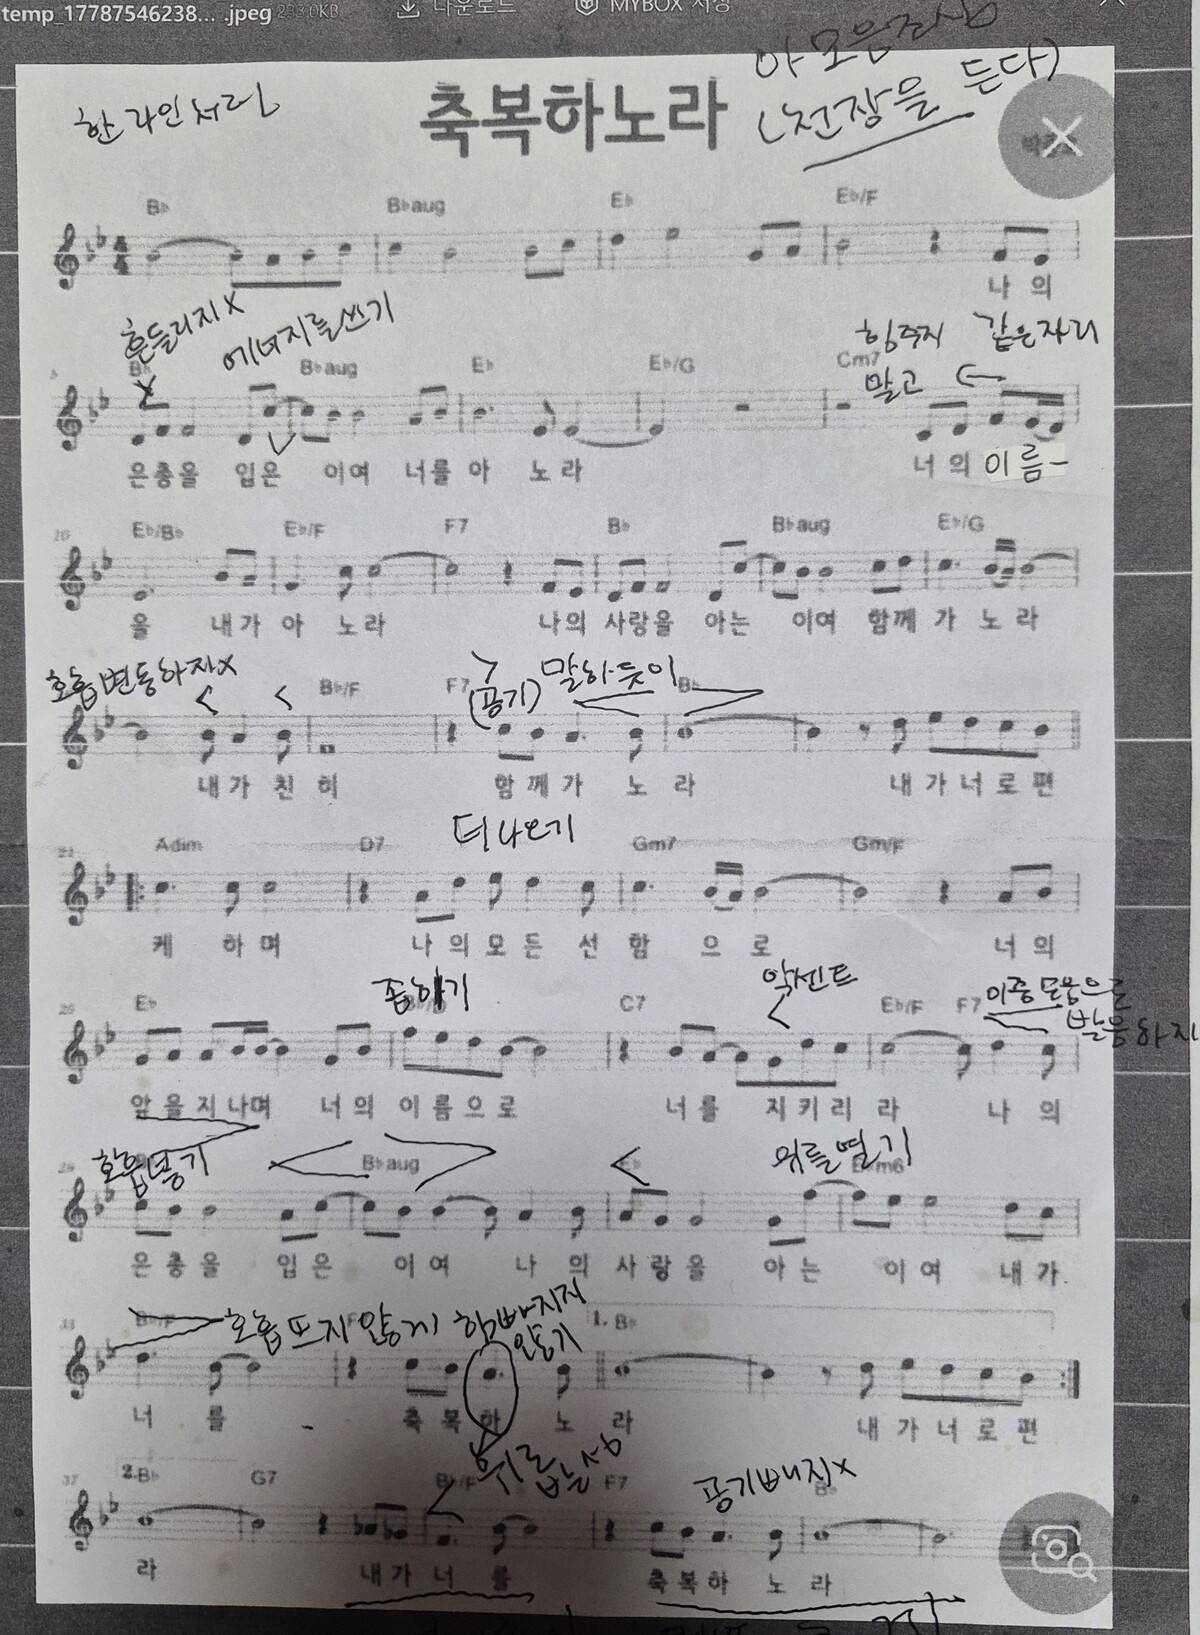 temp_17787546238... .jpeg 233.0KB 다운로드 MYBOX 저장
한 라인 처리
축복하노라
(천장을 든다)
B♭ B♭aug E♭ E♭/F
나 의
흔들리지X 에너지를 쓰기 힘주지 말고 같은자리
5 B♭ B♭aug E♭ E♭/G Cm7
은총을 입은 이여 너를 아 노 라 너 의 이름-
10 E♭/B♭ E♭/F F7 B♭ B♭aug E♭/G
을 내가 아 노라 나의 사랑을 아는 이여 함께 가 노 라
호흡변동하지X (공기) 말하듯이
B♭/F F7 B♭
내가 친 히 함께가 노 라 내가너로편
더 나오기
21 Adim D7 Gm7 Gm/F
케 하며 나의모든 선 함 으 로 너 의
악센트 이중모음으로 발음하지
25 E♭ C7 E♭/F F7
앞을지나며 너의 이름으로 너를 지키리 라 나 의
29 B♭aug
위를열기
은총을 입은 이여 나 의 사랑을 아는 이여 내가
호흡뜨지않게 힘빠지지 않기
33 B♭/F 1. B♭
너 를 축복하 노 라 내가너로편
공기빼지X
37 2. B♭ G7 B♭/F F7 B♭
라 내가 너 를 축복하 노 라